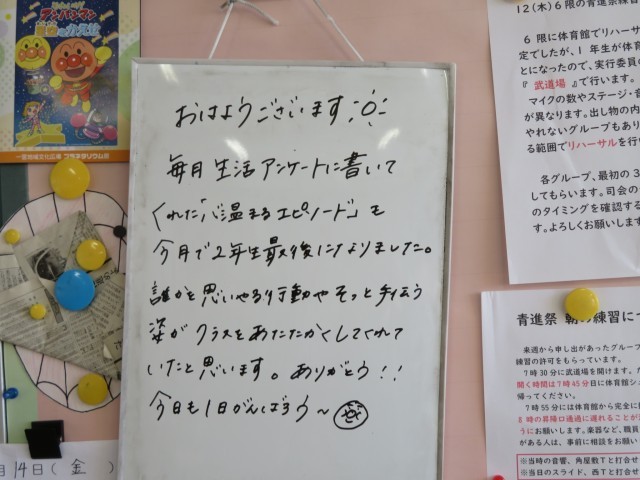 おはようございます
毎月 生活アンケートに書いて
くれた「心温まるエピソード」も
今月で2年生最後になりました。
誰かを思いやる行動やそっと手伝う
姿がクラスをあたたかくしてくれて
いたと思います。ありがとう!!
今日も1日がんばろう〜
アンパンマン
12(木)6限の青進祭練習
6限に体育館でリハーサ
定でしたが、1年生が体育
とになったので、実行委員の
『武道場』で行います。
マイクの数やステージ・音
が異なります。出し物の内
やれないグループもあり
る範囲でリハーサルを行
各グループ、最初の3
してもらいます。司会の
のタイミングを確認する
す。よろしくお願いします
青進祭 朝の練習につ
来週から申し出があったグループ
練習の許可をもらっています。
7時30分に武道場を開けます。
開く時間は7時45分
帰ってください。
7時55分には体育館から完全に
うにお願いします。楽器など、職員
がある人は、事前に相談をお願い
※当時の音響、角屋敷Tと打合せ
※当日のスライド、西Tと打合せ
月14日(金)